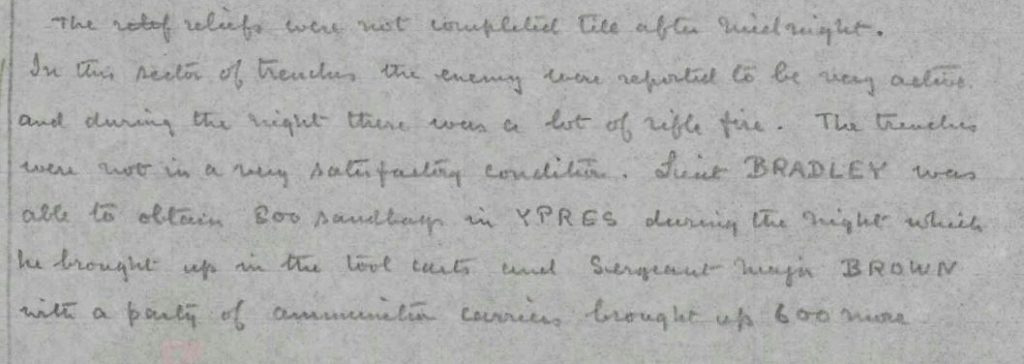 The relief reliefs were not completed till after midnight.
In this sector of trenches the enemy were reported to be very active
and during the night there was a lot of rifle fire. The trenches
were not in a very satisfactory condition. Lieut BRADLEY was
able to obtain 800 sandbags in YPRES during the night which
he brought up in the tool carts and Sergeant Major BROWN
with a party of ammunition carriers brought up 600 more